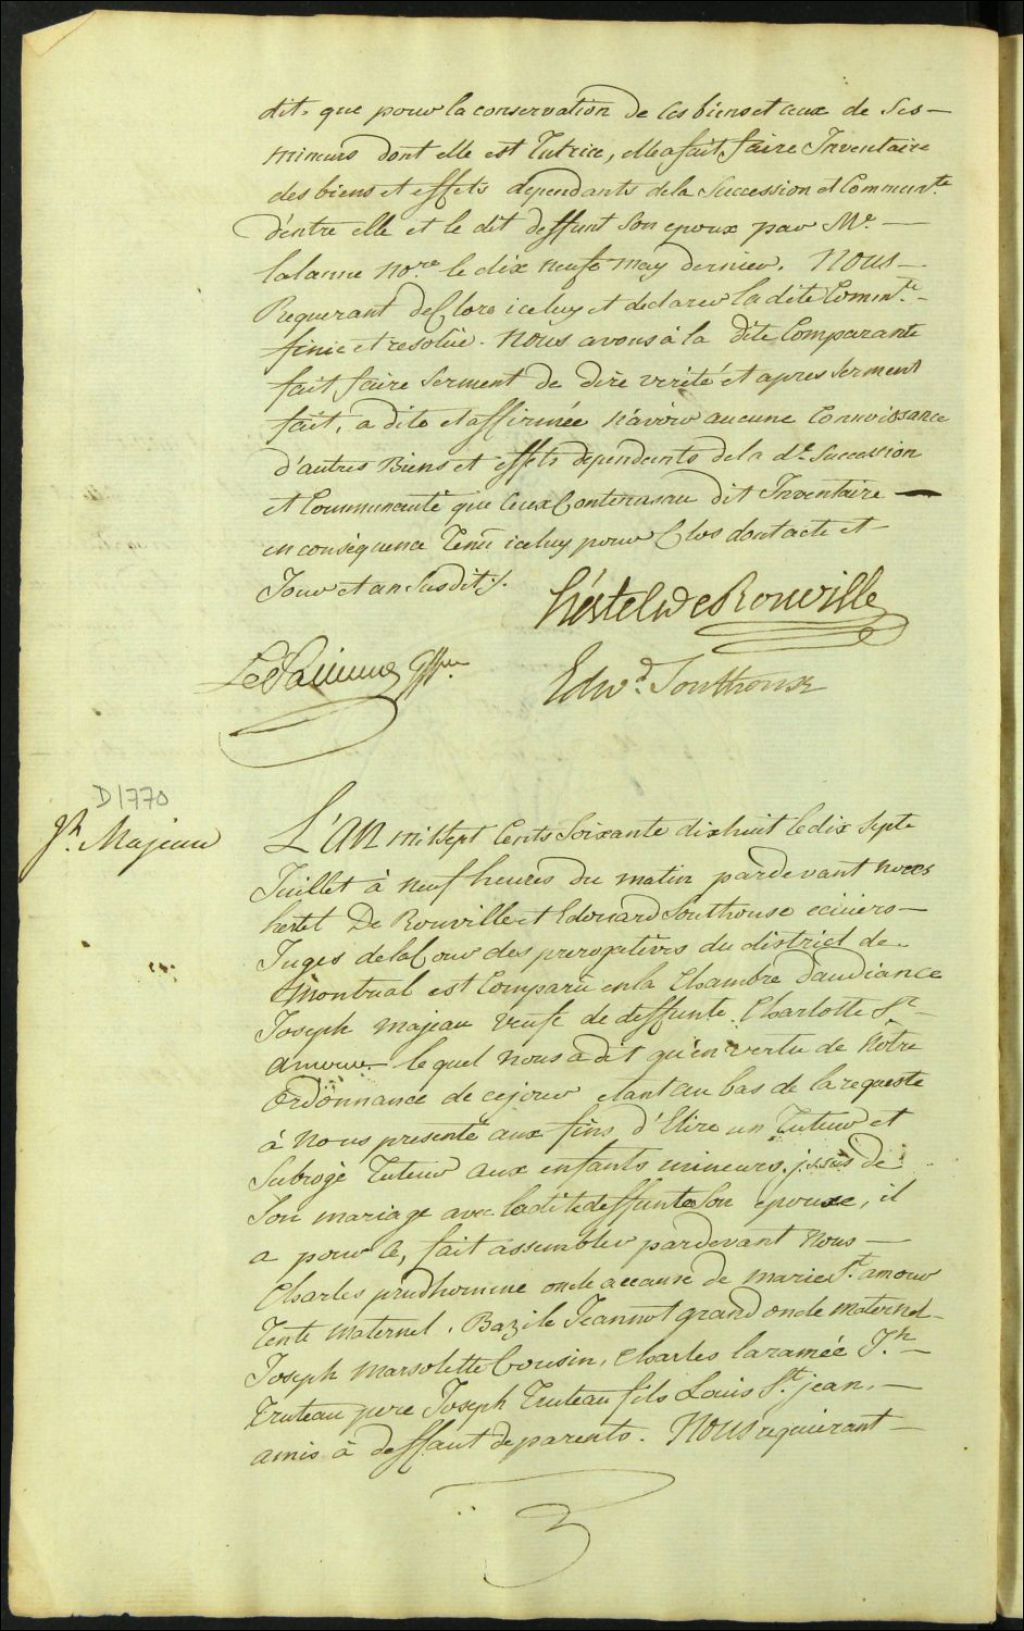 dit, que pour la conservation de ses biens et ceux de Ses —
mineurs dont elle est Tutrice, elle a fait faire Inventaire
des biens et effets dependants de la Succession et Commun.te
d'entre elle et le dit deffunt Son epoux par M.e —
lalanne No.re le dix neufe may dernier. Nous —
Requerant de Clore iceluy et declarer la dite Comm.te —
finie et resolüe. Nous avons à la Dite Comparante
fait faire Serment de dire verité et apres Serment
fait, a dite et affirmée n'avoir aucune Connoissance
d'autres Biens et effets dependents de la d.e Succession
et Communauté que Ceux Contenus au dit Inventaire —
en conséquence Tenu iceluy pour Clos dont acte et —
Jour et an Susdit ./.
hertel De Rouville
Edw.d Southouse
D1770
Jh. Majeau
L'AN mil Sept Cents Soixante dix huit le dix Septe
Juillet à neuf heures du matin pardevant nous
hertel De Rouville et Edouard Southouse ecuiers —
Juges de la Cour des prerogatives du district de
Montreal est Comparu en la Chambre d'audiance
Joseph majeau veufe de deffunte Charlotte St
amour — lequel nous a dit qu'en vertu de Nôtre
Ordonnance de cejour etant au bas de la requeste
à Nous presenté aux fins d'Elire un Tuteur et
Subrogé Tuteur aux enfants mineurs issus de
Son mariage avec la dite deffunte Son epouse, il
a pour ce, fait assembler pardevant Nous —
Charles prudhomme oncle a cause de marie St. amour
Tente Maternel, Bazile Jeannot grand oncle maternel —
Joseph Marsolette Cousin, Charles laramée J.h —
Truteau pere Joseph Truteau fils Louis St. jean, —
amis à deffaut de parents. Nous requierant —